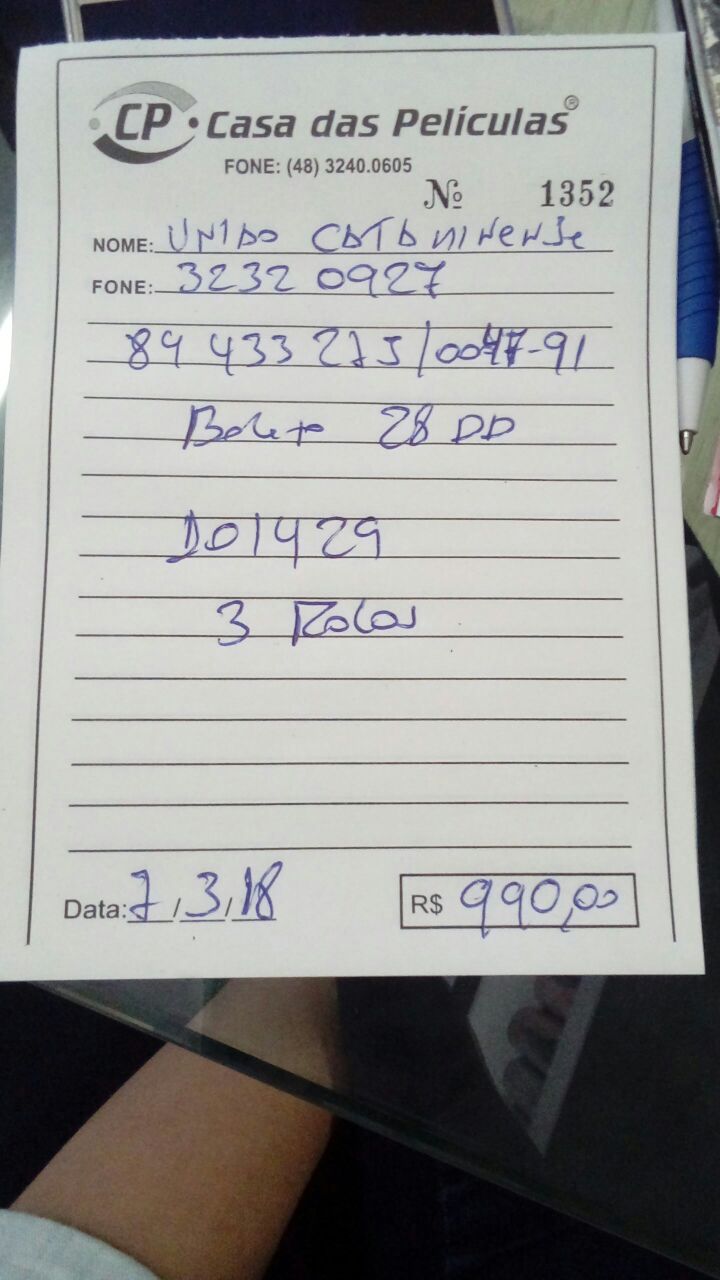 CP Casa das Películas®
FONE: (48) 3240.0605
Nº 1352
NOME: UNIDO CATANINENSE
FONE: 3232 0927
89 433 275/0047-91
Boleto 28 DD
DO1429
3 Rolos
Data: 7/3/18 R$ 990,00